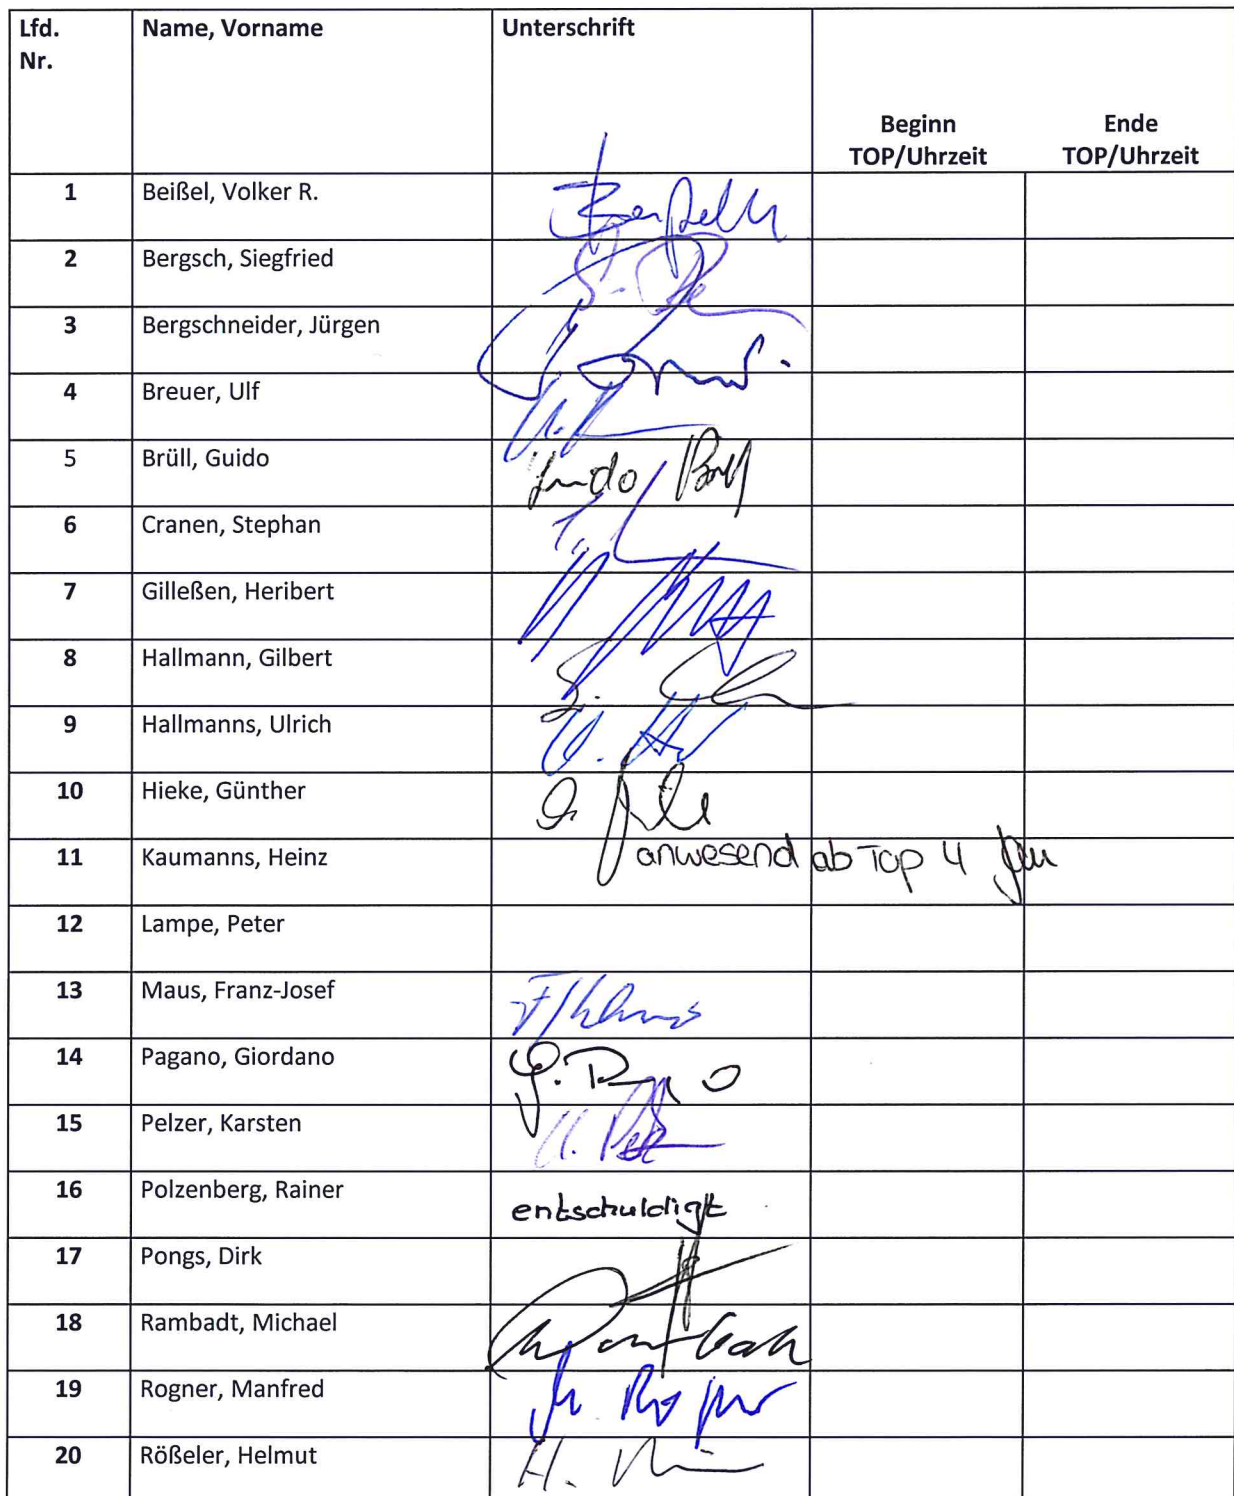 Lfd. Name, Vorname Unterschrift
Nr.
Beginn Ende
TOP/Uhrzeit TOP/Uhrzeit
1 Beißel, Volker R.
2 Bergsch, Siegfried
3 Bergschneider, Jürgen
4 Breuer, Ulf
5 Brüll, Guido
6 Cranen, Stephan
7 Gilleßen, Heribert
8 Hallmann, Gilbert
9 Hallmanns, Ulrich
10 Hieke, Günther
11 Kaumanns, Heinz anwesend ab Top 4
12 Lampe, Peter
13 Maus, Franz-Josef
14 Pagano, Giordano
15 Pelzer, Karsten
16 Polzenberg, Rainer entschuldigt
17 Pongs, Dirk
18 Rambadt, Michael
19 Rogner, Manfred
20 Rößeler, Helmut